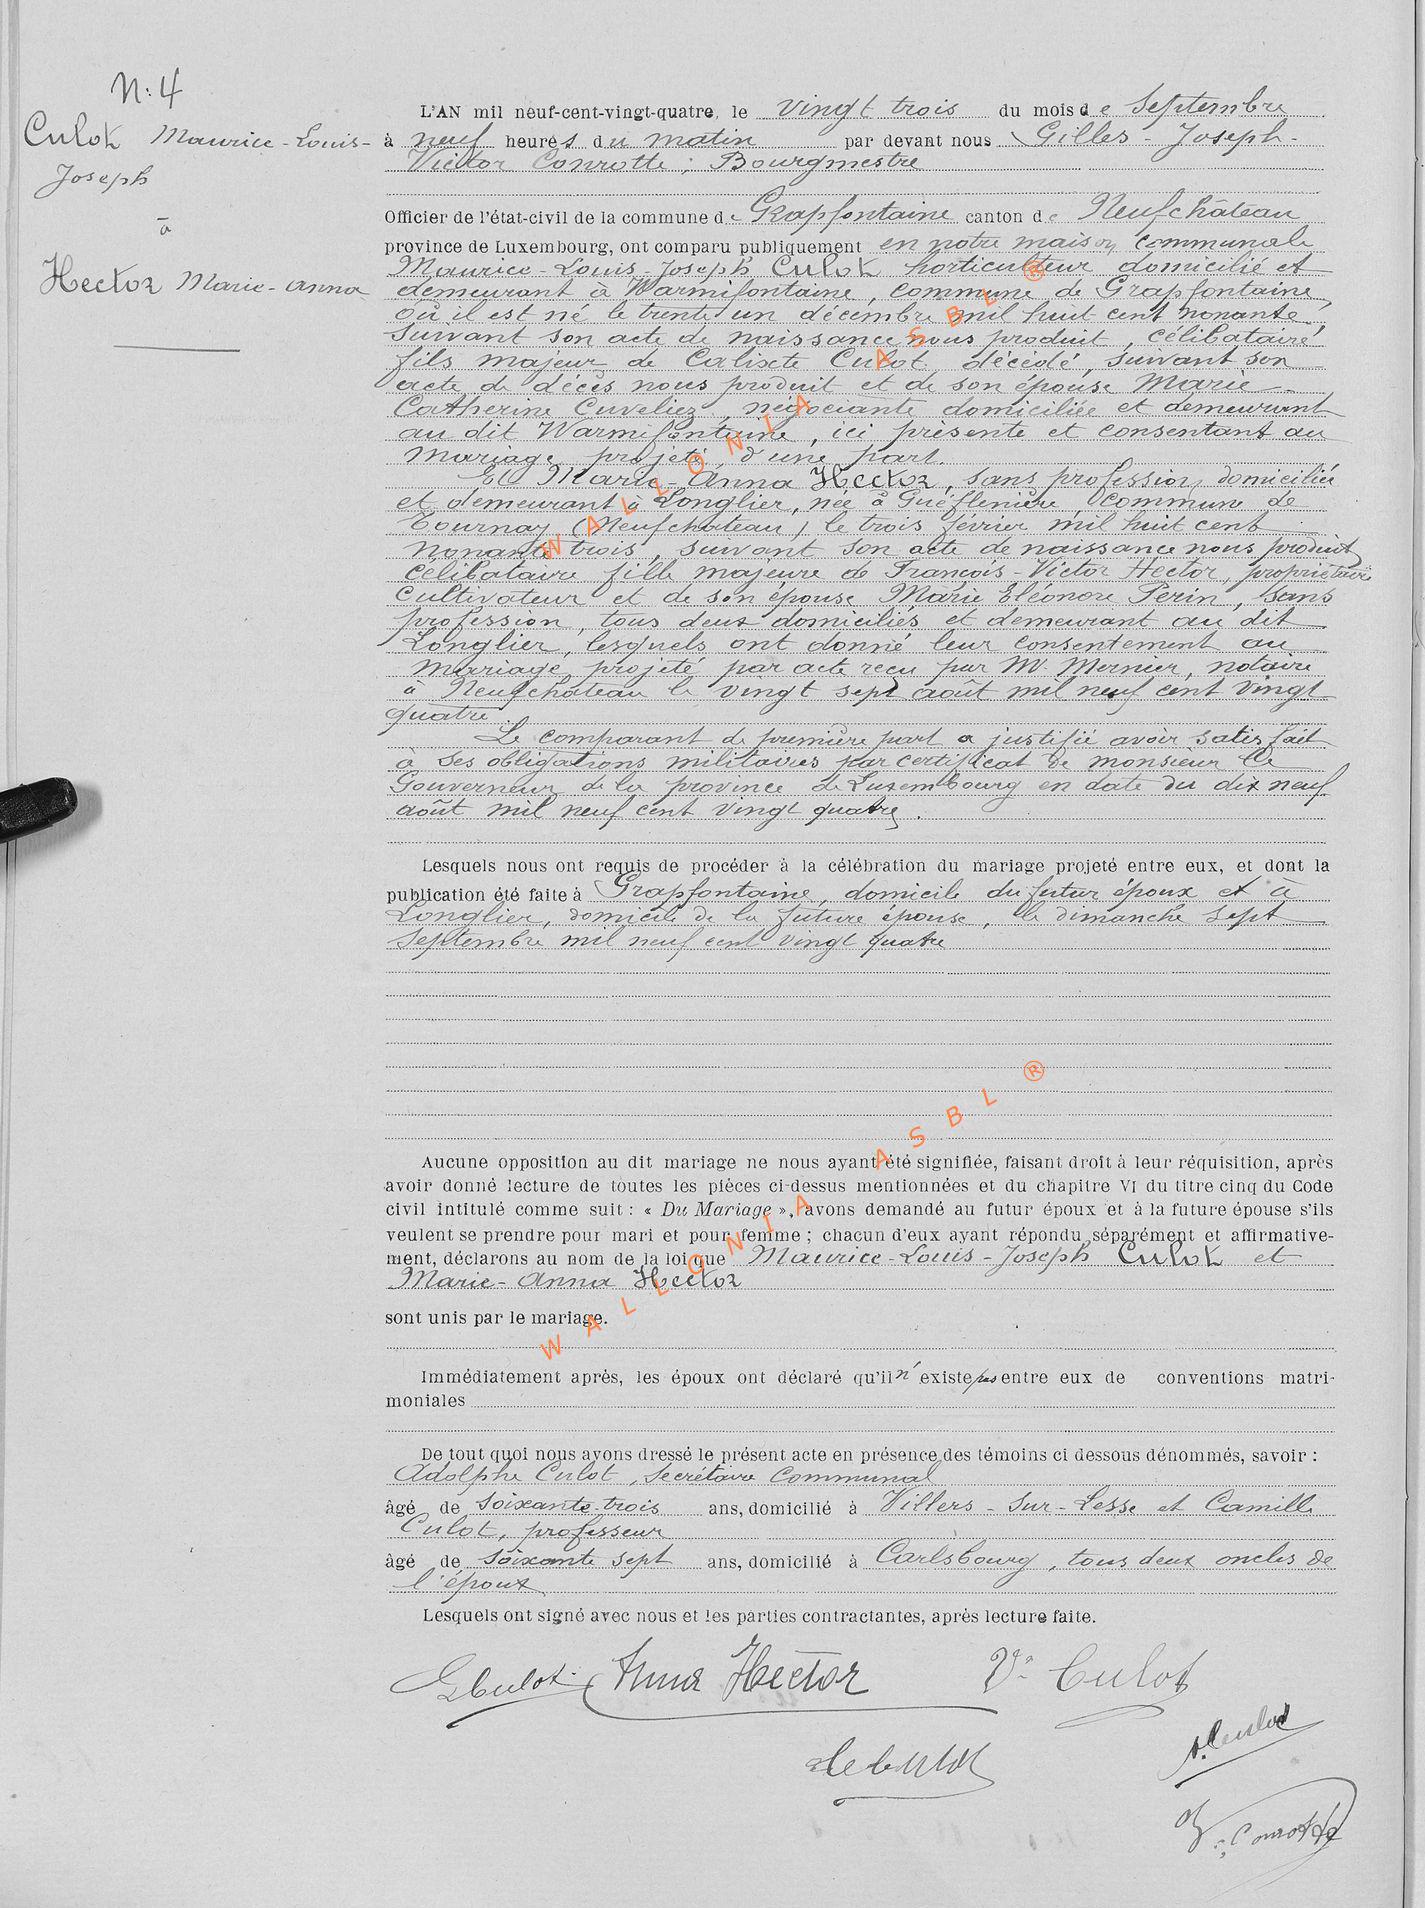 N: 4
Culot Maurice-Louis-
Joseph
à
Hector Marie-Anna
L'AN mil neuf-cent-vingt-quatre, le vingt trois du mois de Septembre
à neuf heures du matin par devant nous Gilles-Joseph-
Victor Conrotte; Bourgmestre
Officier de l'état-civil de la commune de Grapfontaine canton de Neufchâteau
province de Luxembourg, ont comparu publiquement en notre maison communale
Maurice-Louis-Joseph Culot horticulteur domicilié et
demeurant à Warmifontaine, commune de Grapfontaine,
où il est né le trente un décembre mil huit cent nonante,
suivant son acte de naissance nous produit, célibataire
fils majeur de Calixte Culot décédé, suivant son
acte de décès nous produit et de son épouse Marie
Catherine Cuveliez, négociante domiciliée et demeurant
au dit Warmifontaine, ici présente et consentant au
mariage projeté, d'une part.
Et Marie-Anna Hector, sans profession, domiciliée
et demeurant à Longlier, née à commune de
Tournay (Neufchateau) le trois février mil huit cent
nonante trois, suivant son acte de naissance nous produit,
célibataire fille majeure de François-Victor Hector, propriétaire
cultivateur et de son épouse Marie Eléonore Perin, sans
profession, tous deux domiciliés et demeurant au dit
Longlier, lesquels ont donné leur consentement au
mariage projeté par acte reçu par M. Mernier, notaire
à Neufchâteau le vingt sept août mil neuf cent vingt
quatre.
Le comparant de première part a justifié avoir satisfait
à ses obligations militaires par certificat de monsieur le
Gouverneur de la province de Luxembourg en date du dix neuf
août mil neuf cent vingt quatre.
Lesquels nous ont requis de procéder à la célébration du mariage projeté entre eux, et dont la
publication été faite à Grapfontaine, domicile du futur époux et à
Longlier, domicile de la future épouse, le dimanche sept
septembre mil neuf cent vingt quatre
Aucune opposition au dit mariage ne nous ayant été signifiée, faisant droit à leur réquisition, après
avoir donné lecture de toutes les pièces ci-dessus mentionnées et du chapitre VI du titre cinq du Code
civil intitulé comme suit : « Du Mariage », avons demandé au futur époux et à la future épouse s'ils
veulent se prendre pour mari et pour femme ; chacun d'eux ayant répondu séparément et affirmative-
ment, déclarons au nom de la loi que Maurice-Louis-Joseph Culot et
Marie-Anna Hector
sont unis par le mariage.
Immédiatement après, les époux ont déclaré qu'il n'existe pas entre eux de conventions matri-
moniales
De tout quoi nous avons dressé le présent acte en présence des témoins ci dessous dénommés, savoir :
Adolphe Culot, secrétaire communal
âgé de soixante-trois ans, domicilié à Villers-sur-Lesse et Camille
Culot, professeur
âgé de soixante sept ans, domicilié à Carlsbourg, tous deux oncles de
l'époux
Lesquels ont signé avec nous et les parties contractantes, après lecture faite.
Culot Anna Hector Ve Culot
A. Culot
Culot
Conrotte
WALLONIA ASBL ®
WALLONIA ASBL ®